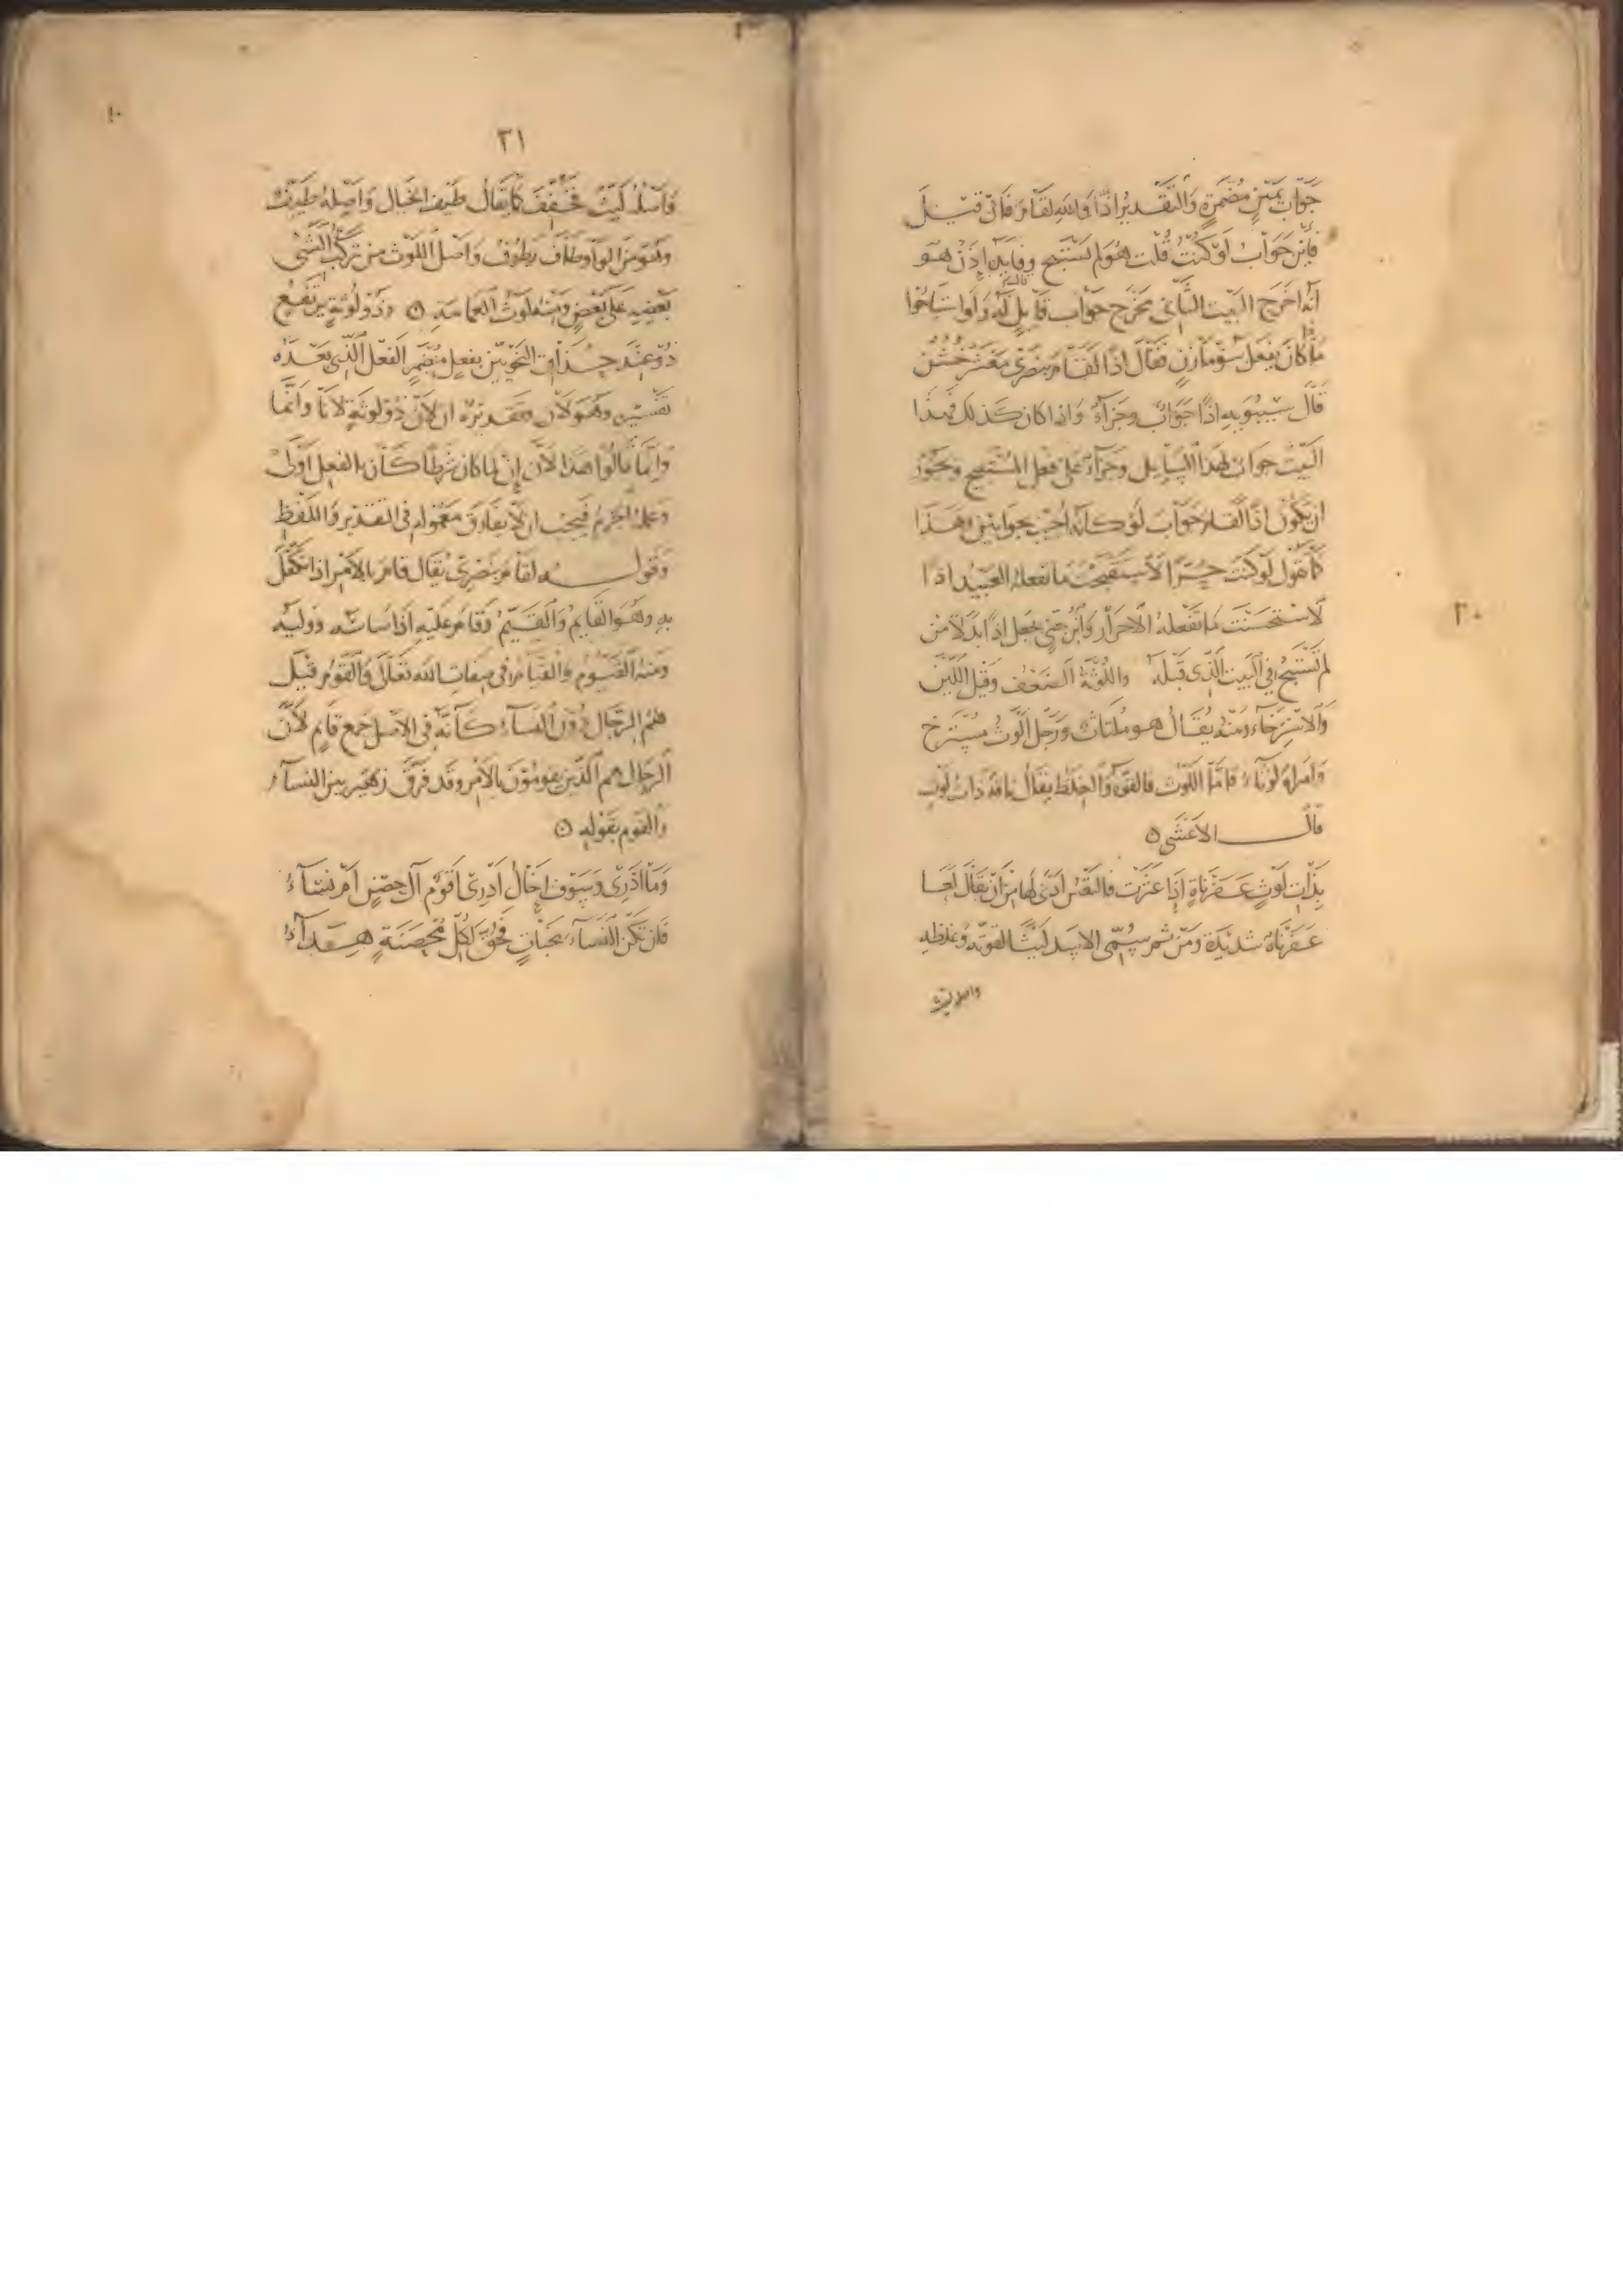 جَوَابُ يَمِينٍ مُضْمَرَةٍ وَالتَّقْدِيرُ اذًا وَاللهِ لقَامَ فَانْ قِيْلَ
فَأَيْنَ جَوَابُ لَوْ كُنْتُ قُلْتَ هُوَ لم تَسْتَبِح وفايدة اِذَنْ هُوَ
أنّه اخرج البَيْتَ الثَّانِي مخرج جَوَاب قَايِلٍ قالَ لَهُ وَلَو استباحُوا
مَاذا كان يفعَل بَنُو مَازِنٍ فقَالَ اذًا لَقَامَ بِنَصْرِي مَعْشَرٌ خُشُنٌ
قَالَ سِيْبُوَيهِ اذًا جَوَابٌ وجَزَآءٌ وَاذا كان كَذلك فهذا
البَيْت جوابٌ لهذا السَّايِل وجَزَآءٌ عَلى فعل المُسْتَبِيح وَيجُوزُ
ان يكُونَ اذًا لَقَامَ جَوَابَ لَوْ كأنّه اُجيبَ بجوابَيْن وهَذا
كَمَا تَقُول لَو كنتَ حُرًّا لاسْتَقْبَحتَ ما يفعلهُ العَبيْدُ اذًا
لاسْتَحْسَنْتَ مَا تَفْعَلهُ الاحرَارُ وَابْنُ جِنّي جَعَل اذًا بدلاً مِنْ
لم تَسْتَبِحْ في البَيت الّذي قَبْلَهُ واللُّوثَةُ الضَّعْف وَقيل اللّيْن
وَالاسْتِرْخَآء ومنْه يُقَالُ هو مُلتاثٌ وَرَجُل اَلْوَثُ مُسْتَرْخٍ
وَامرأة لَوْثاءُ فامّا اللَّوْث فالقُوّة وَالغِلَظ يقَالُ نَاقة ذات لَوْثٍ
قالَ الاعْشَى ۞
بِذَاتِ لَوْثٍ عَفَرْنَاةٍ إِذَا عَثَرَتْ فَالتَّعْسُ اَدْنَى لَها مِنْ اَنْ يُقَالَ لَعَا
عَفَرْنَاةٌ شديْدَة وَمِنْ ثم سُمّي الاسَد لَيْثًا لقوّته وغِلَظِهِ
واصل ليث
٢٠
٢١
فَاَصْلُهُ لَيِّثٌ فَخُفِّفَ كما يُقَالُ طَيْف الخَيَال وَاَصْلهُ طَيِّفٌ
وهُوَ مِنَ الوَاو وطَافَ يَطُوفُ وَاصْلُ اللَّوْث مِن تَرَكُّبِ الشَّيْء
بَعْضِهِ عَلَى بَعْضٍ ومِنْهُ لَوْثُ العِمَامَةِ ۞ وذُو لُوثَةٍ يَرتَفِعُ
ذُوْ عِنْدَ حُذَّاقِ النَّحْوِيّيْنَ بفعلٍ مُضْمَرٍ الفِعْلُ الَّذِي بَعْدَهُ
تَفْسِيْره وَهُوَ لاَنَ وتقديرُهُ ان لاَنَ ذُو لُوثَةٍ لاَنَا وَانَّما
وانّما قالُوا هذا لأنّ إِنْ لما كان شرطًا كَانَ بالفعل اَوْلَى
وعَملُهُ الجَزمُ فيَجبُ ان لا يفارق مَعْمُوله في التقدير وَاللَّفْظِ
وَقوله لقَامَ بِنَصْرِي يُقَال قامَ بالامْر اذا تكَفَّلَ
به وهُوَ القَايِمُ وَالقَيّمُ وَقَامَ عَلَيْهِ اذا سَاسَهُ وَوليَهُ
ومنهُ القَيّوم والقَيّام في صِفَاتِ اللهِ تَعَالَى وَالقَوْمُ قيْلَ
هُمُ الرِّجَالُ دُوْنَ النِّسَآءِ كَاَنّهُ في الاَصْل جَمع قَايمٍ لأنّ
الرجال هم الّذيْن يقومُوْنَ بالاَمْر وقد فَرَّقَ زُهَيْر بين النّسَآء
والقَوم بقَوْلِهِ ۞
وَمَا اَدْرِي وَسَوْفَ اِخَالُ اَدْرِي اَقَوْمٌ آلُ حِصْنٍ اَمْ نِسَآءُ
فَان تَكُنِ النِّسَآءَ مخبّاتٍ فَحُقَّ لِكُلِّ مُحْصَنَةٍ هِدَآءُ
١٠